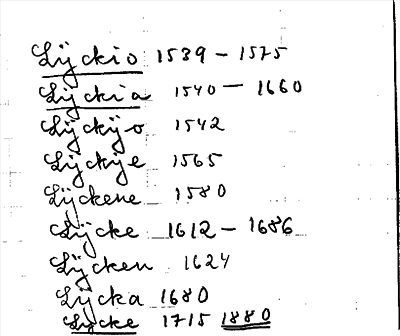 Lÿckio 1539 – 1575
Lÿckia 1540 – 1660
Lÿckÿo 1542
Lÿckÿe 1565
Lÿckene 1580
Lÿcke 1612 – 1686
Lÿcken 1624
Lÿcka 1680
Lycke 1715 1880